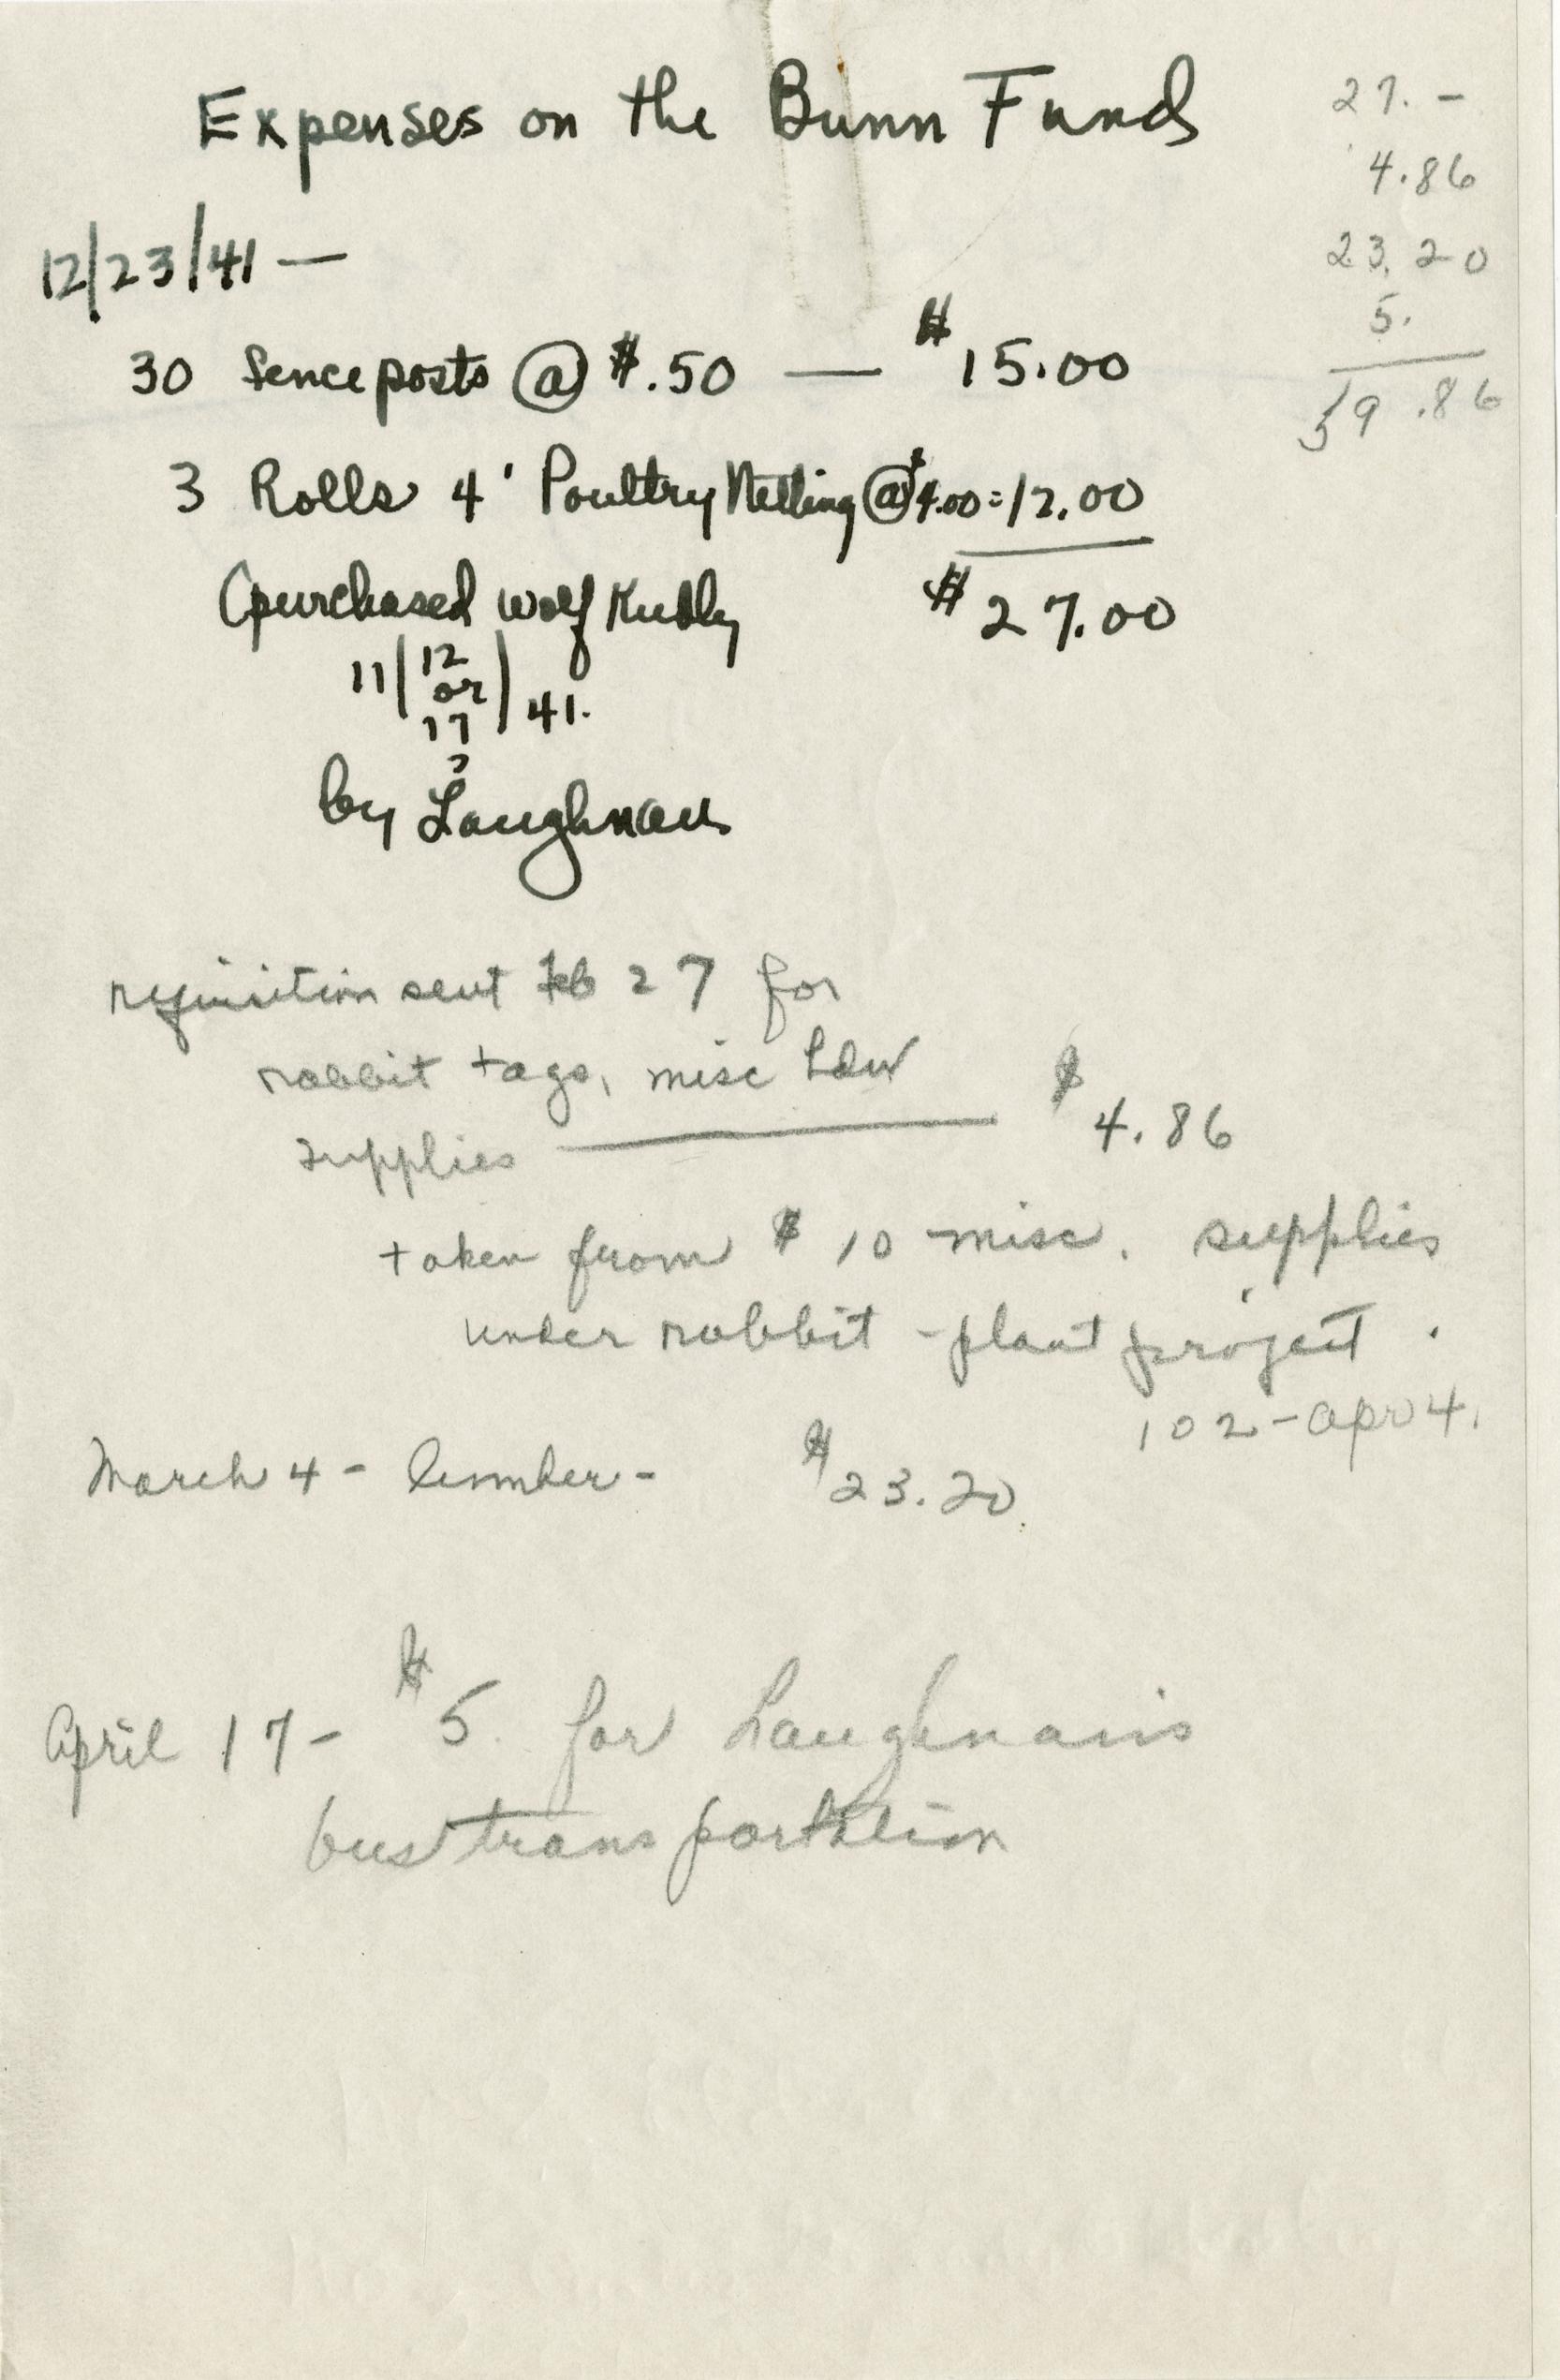 Expenses on the Bunn Fund
12/23/41 —
30 fence posts @ $.50 — $15.00
3 Rolls 4' Poultry Netting @ $4.00 = 12.00
$27.00
(purchased Wolf Kubly
11/12 or 17/41.
?
by Laughnan
requisition sent Feb 27 for
rabbit tags, misc
supplies — $4.86
taken from $10 misc. supplies
under rabbit - plant project.
102 - apr 4.
March 4 - lumber - $23.20
April 17 - $5. for Laughnan's
bus transportation
27. -
4.86
23.20
5.
59.86